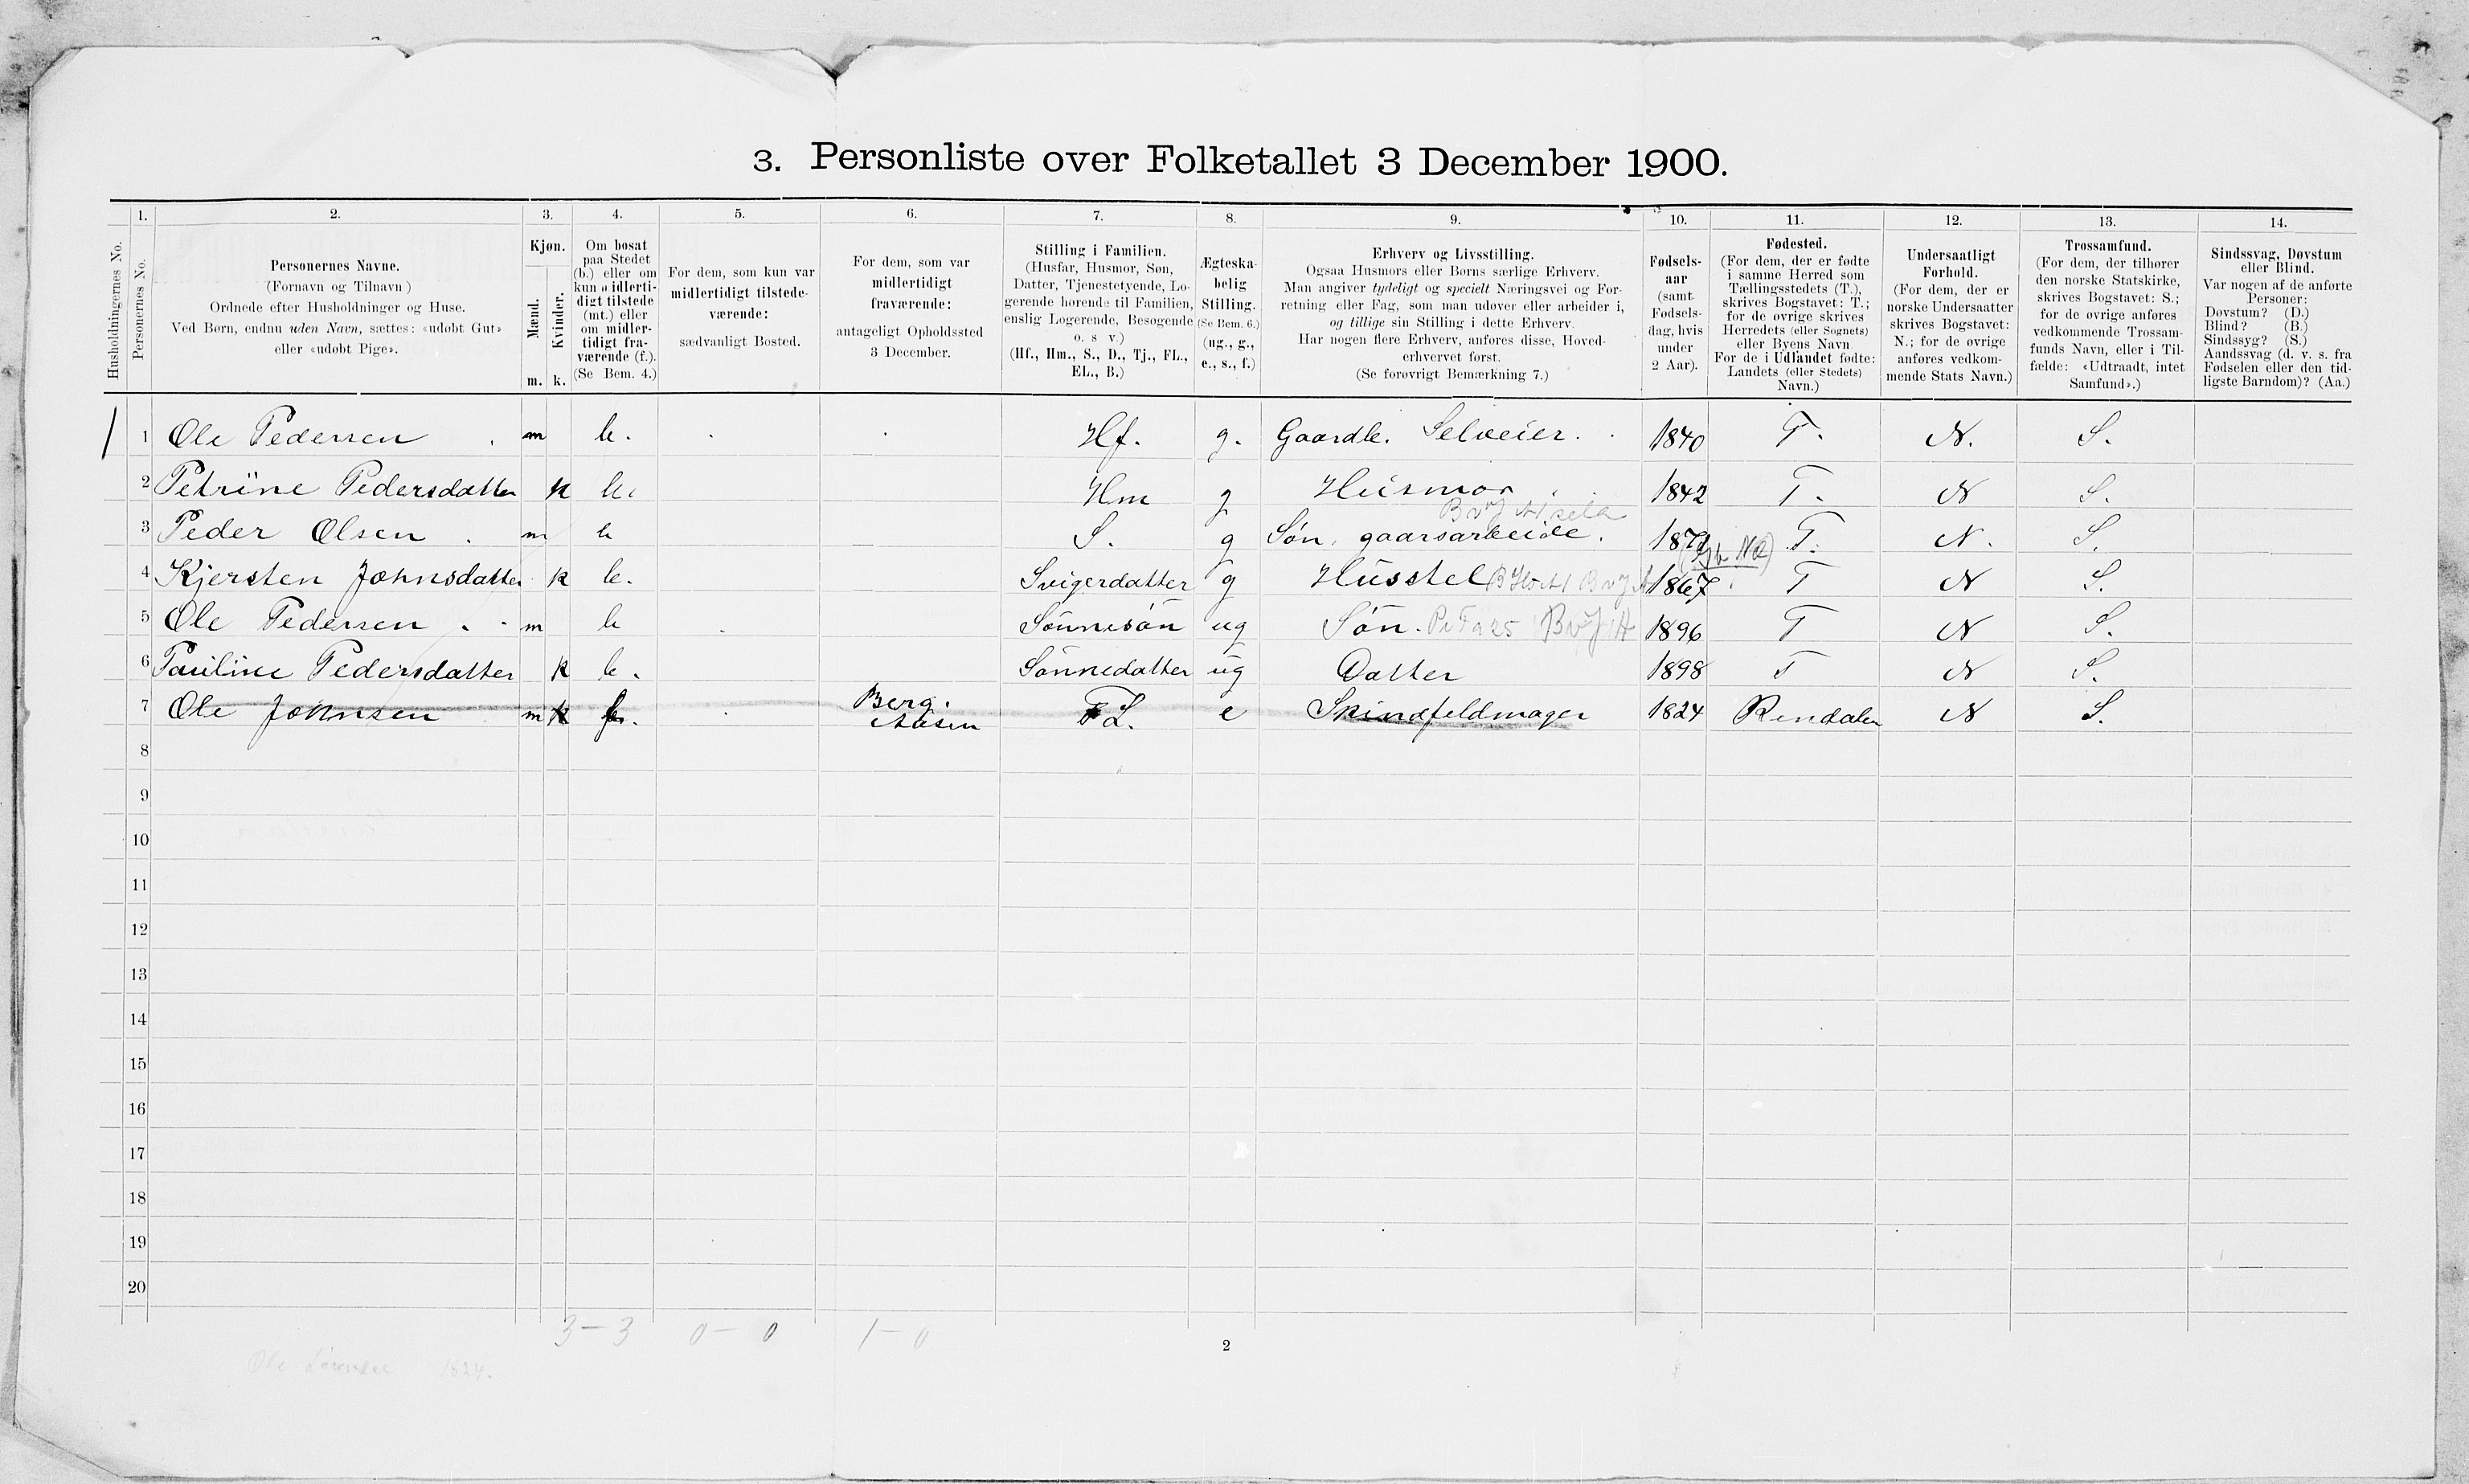 3. Personliste over Folketallet 3 December 1900.
1. 2. 3. 4. 5. 6. 7. 8. 9. 10. 11. 12. 13. 14.
Husholdningernes No.
Personernes No.
Personernes Navne.
(Fornavn og Tilnavn)
Ordnede efter Husholdninger og Huse.
Ved Børn, endnu uden Navn, sættes: «udøbt Gut»
eller «udøbt Pige».
Kjøn.
Mænd.
Kvinder.
m. k.
Om bosat
paa Stedet
(b.) eller om
kun midlerti-
digt tilstede
(mt.) eller
om midler-
tidigt fra-
værende (f.).
(Se Bem. 4.)
For dem, som kun var
midlertidigt tilstede-
værende:
sædvanligt Bosted.
For dem, som var
midlertidigt
fraværende:
antageligt Opholdssted
3 December.
Stilling i Familien.
(Husfar, Husmor, Søn,
Datter, Tjenestetyende, Lo-
gerende hørende til Familien,
enslig Logerende, Besøgende
o. s v.)
(Hf., Hm., S., D., Tj., FL.,
EL., B.)
Ægteska-
belig
Stilling.
(Se Bem. 6.)
(ug., g.,
e., s., f.)
Erhverv og Livsstilling.
Ogsaa Husmors eller Børns særlige Erhverv.
Man angiver tydeligt og specielt Næringsvei og For-
retning eller Fag, som man udøver eller arbeider i,
og tillige sin Stilling i dette Erhverv.
Har nogen flere Erhverv, anføres disse, Hoved-
erhvervet først.
(Se forøvrigt Bemærkning 7.)
Fødsels-
aar
(samt
Fødsels-
dag, hvis
under
2 Aar).
Fødested.
(For dem, der er fødte
i samme Herred som
Tællingsstedets (T.),
skrives Bogstavet: T.;
for de øvrige skrives
Herredets (eller Sognets)
eller Byens Navn
For de i Udlandet fødte:
Landets (eller Stedets)
Navn.)
Undersaatligt
Forhold.
(For dem, der er
norske Undersaatter
skrives Bogstavet:
N.; for de øvrige
anføres vedkom-
mende Stats Navn.)
Trossamfund.
(For dem, der tilhører
den norske Statskirke,
skrives Bogstavet: S.;
for de øvrige anføres
vedkommende Trossam-
funds Navn, eller i Til-
fælde: «Udtraadt, intet
Samfund».)
Sindssvag, Døvstum
eller Blind.
Var nogen af de anførte
Personer:
Døvstum? (D.)
Blind? (B.)
Sindssyg? (S.)
Aandssvag (d. v. s. fra
Fødselen eller den tid-
ligste Barndom)? (Aa.)
1 1 Ole Pedersen m b. Hf. g. Gaardb. Selveier. 1840 T. N. S.
2 Petrine Pedersdatter k b. Hm g Husmor 1842 T. N S.
3 Peder Olsen m b S. g Søn, gaarsarbeide. T. N. S.
4 Kjersten Johnsdatter k b. Svigerdatter g Husstel 1867 T N S.
5 Ole Pedersen m b Sønnesøn ug Søn. 1896 T N S.
6 Pauline Pedersdatter k b. Sønnedatter ug Datter 1898 T N S.
7 Ole Johnsen m f. Berg. Aasen FL. e Skindfeldmager 1824 Rendalen N S.
8
9
10
11
12
13
14
15
16
17
18
19
20
3 - 3 0 - 0 1 - 0
2
Ole 1824.